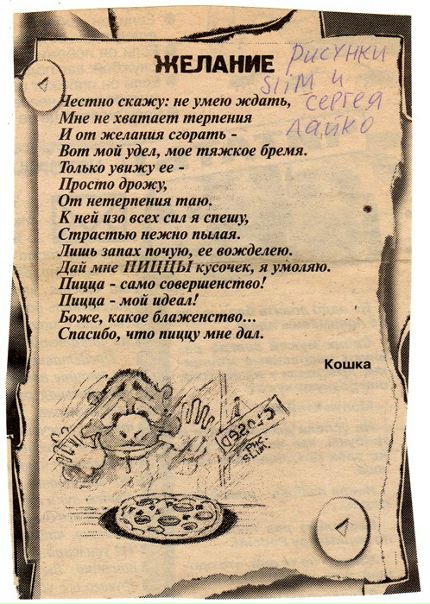 ЖЕЛАНИЕ
Рисунки
SLiM и
Сергея
Лайко
Честно скажу: не умею ждать,
Мне не хватает терпения
И от желания сгорать -
Вот мой удел, мое тяжкое бремя.
Только увижу ее -
Просто дрожу,
От нетерпения таю.
К ней изо всех сил я спешу,
Страстью нежно пылая.
Лишь запах почую, ее вожделею.
Дай мне ПИЦЦЫ кусочек, я умоляю.
Пицца - само совершенство!
Пицца - мой идеал!
Боже, какое блаженство...
Спасибо, что пиццу мне дал.
Кошка
CLOSED
Рис.
SLiM.